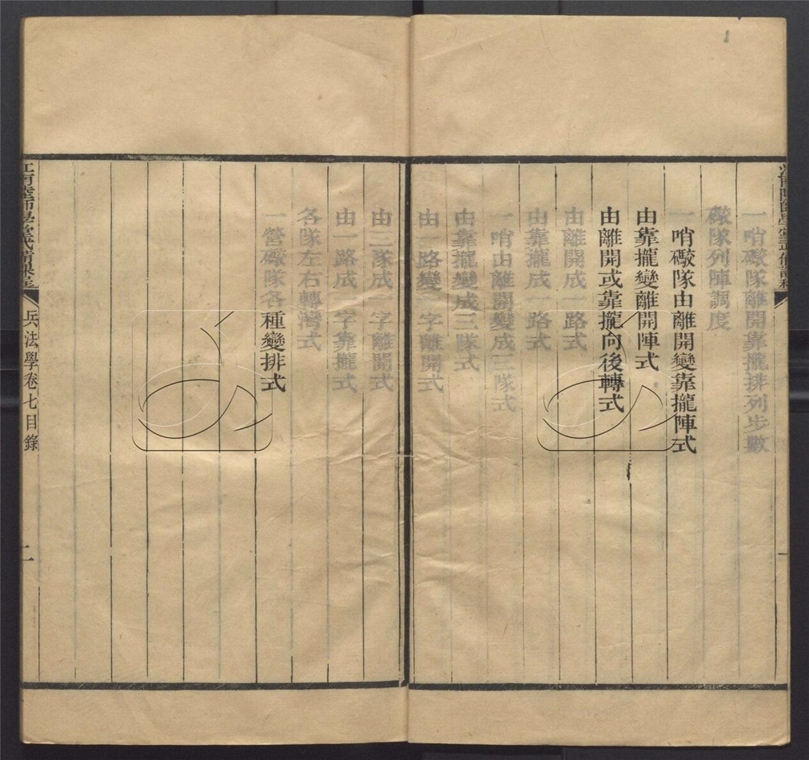 一哨礮隊離開靠攏排列步數
礮隊列陣調度
一哨礮隊由離開變靠攏陣式
由靠攏變離開陣式
由離開或靠攏向後轉式
由離開成一路式
由靠攏成一路式
一哨由離開變成三隊式
由靠攏變成三隊式
由一路變一字離開式
由三隊成一字離開式
由一路成一字靠攏式
各隊左右轉灣式
一營礮隊各種變排式
兵法學卷七目錄
二